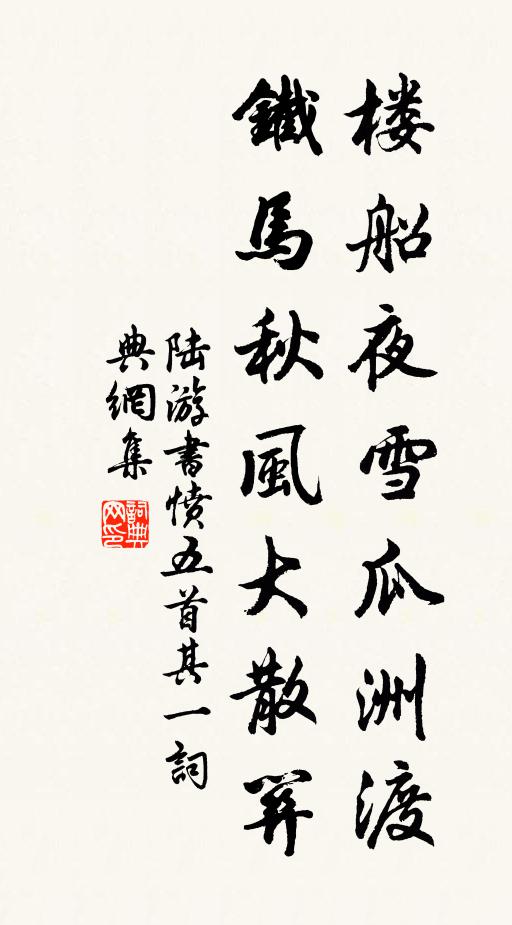 楼船夜雪瓜洲渡
鐵馬秋風大散關
陆游書憤五首其一詞
典網集
詞典網印